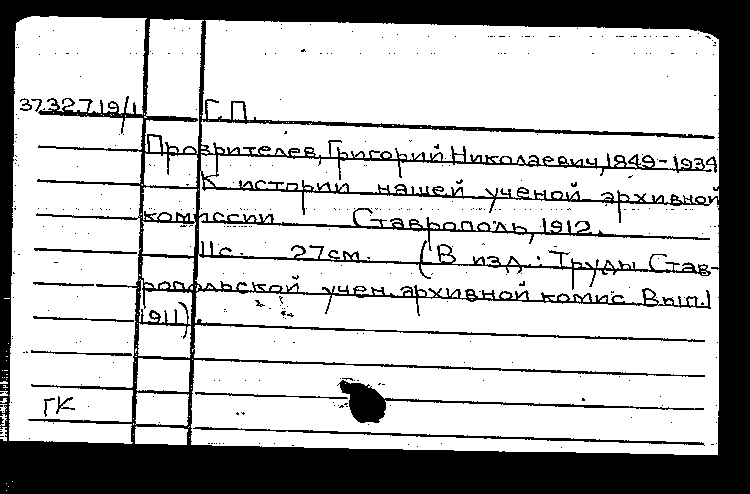 37.32.7.19/1 Г.П.
Прозрителев, Григорий Николаевич, 1849-1934
К истории нашей ученой архивной
комиссии Ставрополь, 1912.
11с. 27см. (В изд.: Труды Став-
ропольской учен. архивной комис. Вып.1
1911).
ГК